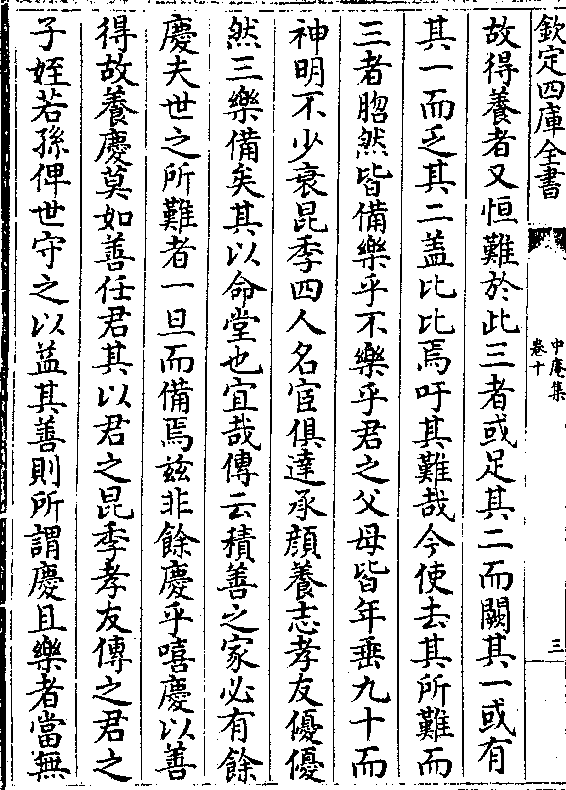 欽定四庫全書
中庵集
卷十
三
故得養者又恒難於此三者或足其二而闕其一或有
其一而乏其二蓋比比焉吁其難哉今使去其所難而
三者㫚然皆備樂乎不樂乎君之父母皆年垂九十而
神明不少衰昆季四人名宦俱達承顔養志孝友優優
然三樂備矣其以命堂也宜哉傳云積善之家必有餘
慶夫世之所難者一旦而備焉兹非餘慶乎嘻慶以善
得故養慶莫如善任君其以君之昆季孝友傳之君之
子姪若孫俾世守之以益其善則所謂慶且樂者當無